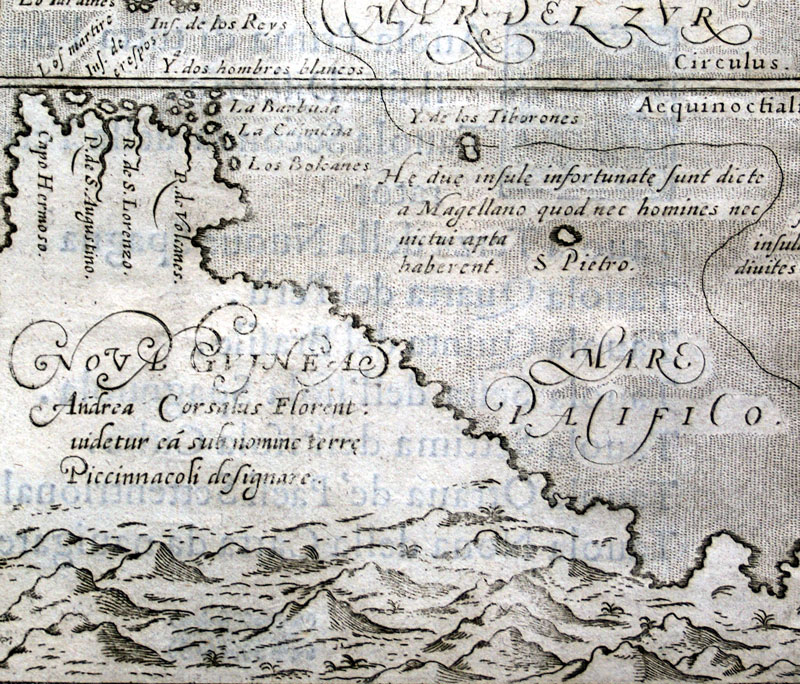 Inſ. de los Reys
MAR DEL ZVR
Los martire
Inſ. de
creſpos
Y. dos hombres blancos
Circulus.
Aequinoctiali
La Barbada
La Caimana
Los Bolcanes
Y. de los Tiborones
Capo Hermoso.
P. de S. Augustino.
R. de S. Lorenzo
P. de Volcones.
He due inſule infortunate ſunt dicte
a Magellano quod nec homines nec
uictui apta
haberent.
S Pietro.
inſul
diuites
NOVA GVINEA
Andrea Corſalus Florent:
uidetur eā sub nomine terrę
Piccinnacoli deſignare.
MARE
PACIFICO.